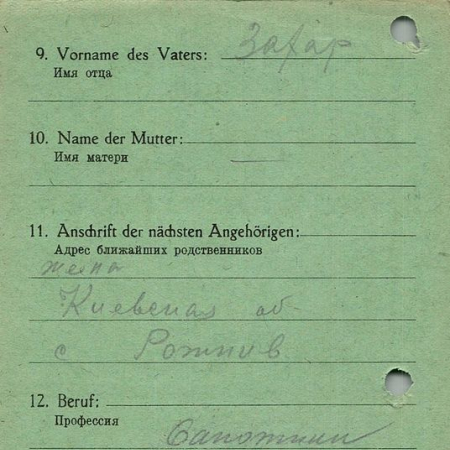 9. Vorname des Vaters: Захар
Имя отца
10. Name der Mutter: —
Имя матери
11. Anschrift der nächsten Angehörigen:
Адрес ближайших родственников
жена
Киевская об-
с Рожнив
12. Beruf:
Профессия
Сапожник